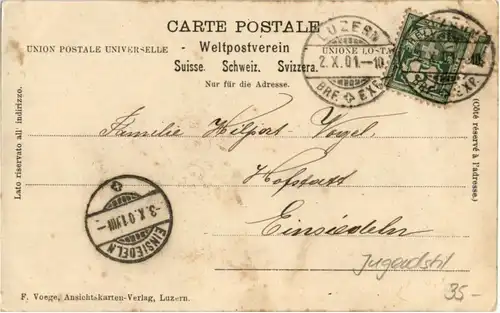 CARTE POSTALE
UNION POSTALE UNIVERSELLE - Weltpostverein
Suisse. Schweiz. Svizzera.
Nur für die Adresse.
LUZERN
2.X.01.–10
BRF. EXP.
EXP.
Lato riservato all' indirizzo.
(Côté réservé à l'adresse.)
Familie Hilfort-Vogel,
Hofstatt
Einsiedeln
EINSIEDELN
3.X.01.VIII–
Jugendstil
35-
F. Voege, Ansichtskarten-Verlag, Luzern.